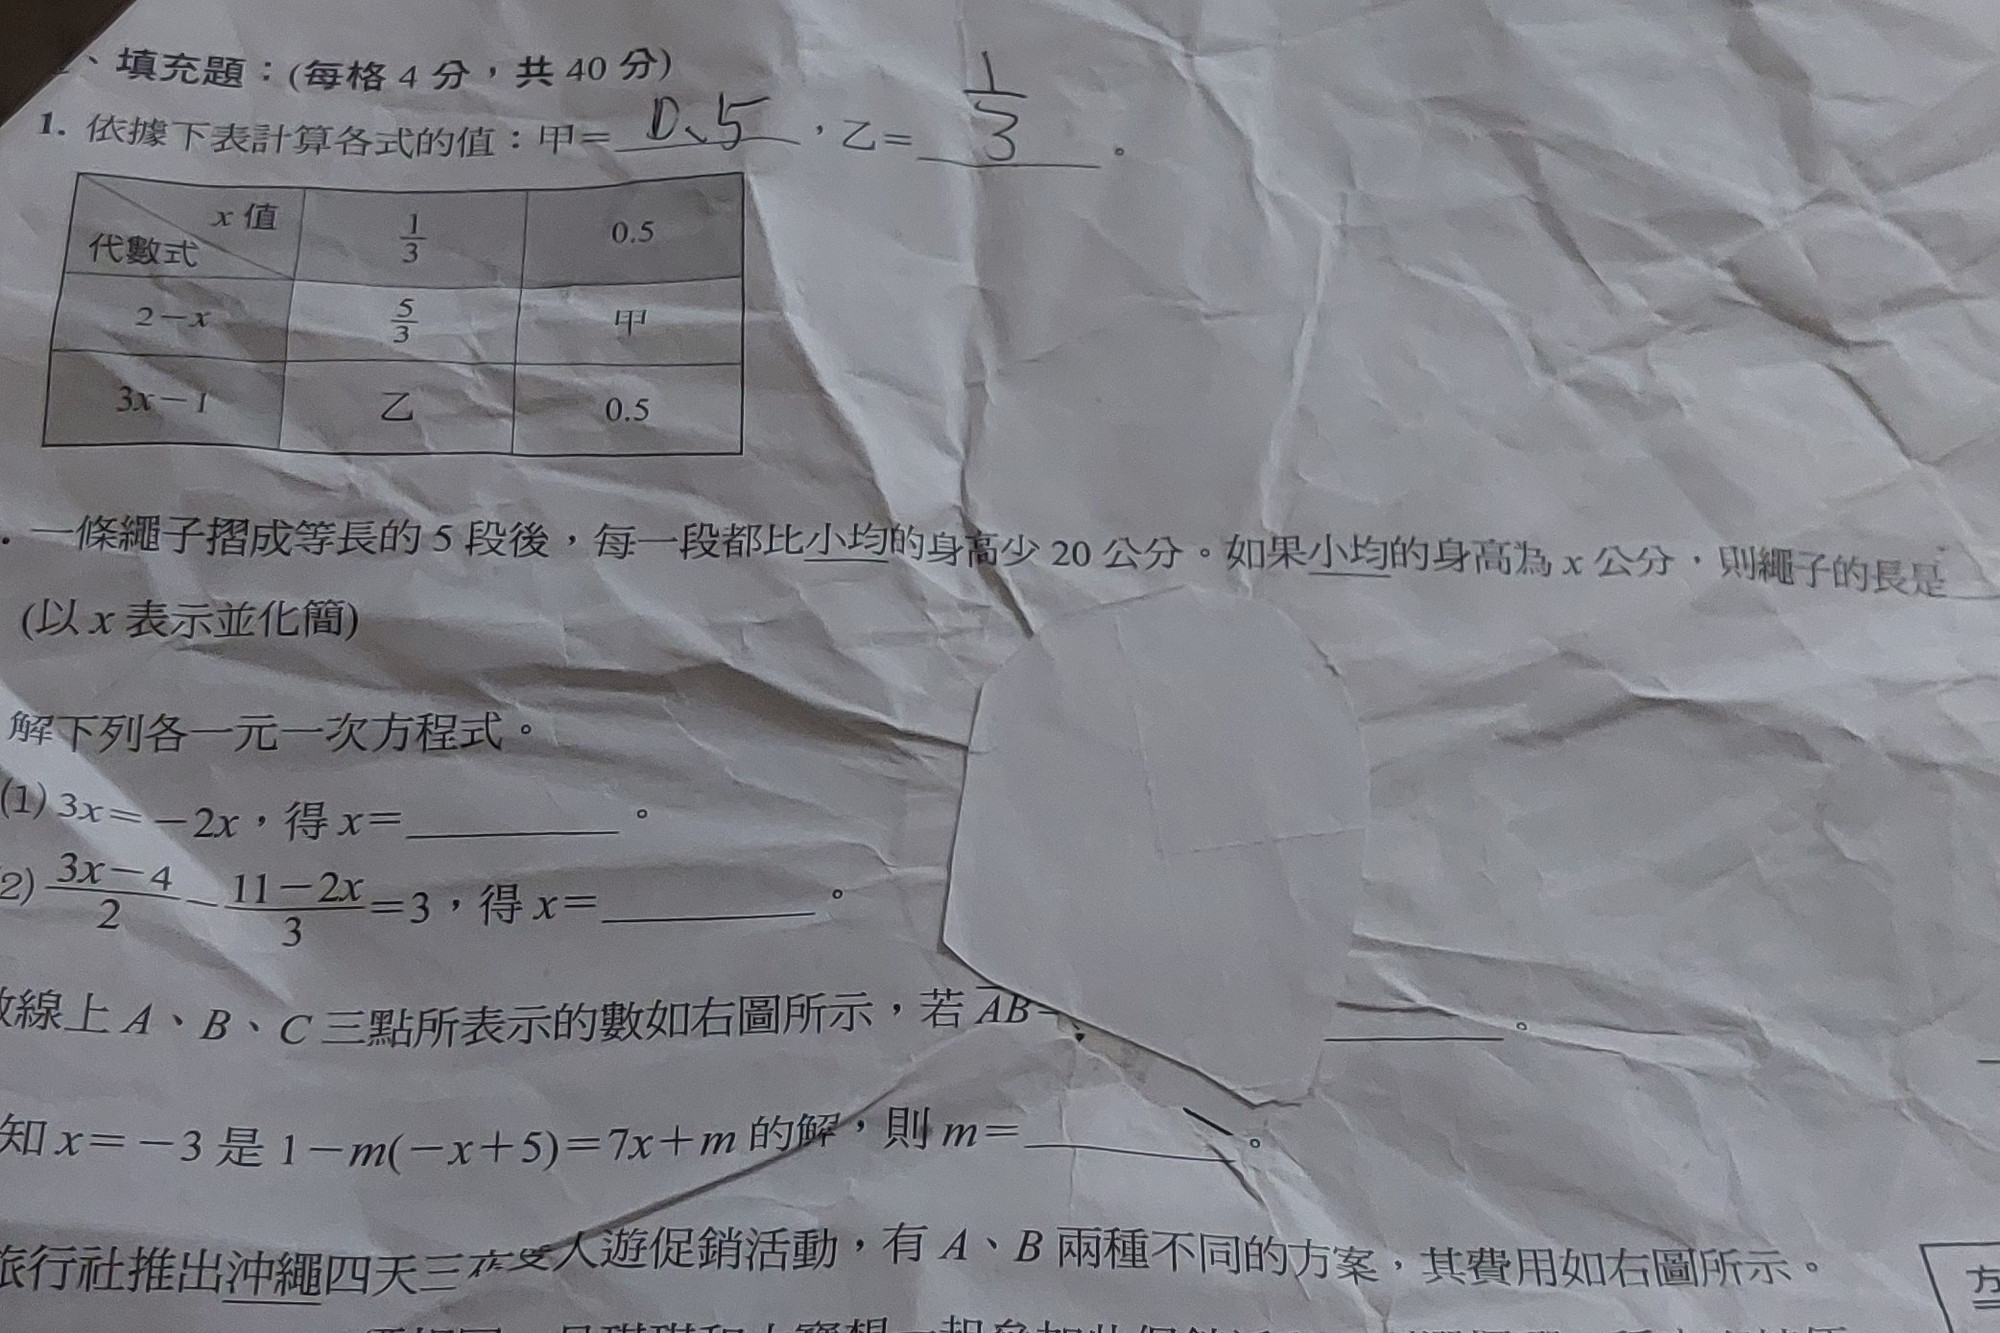 、填充題：(每格 4 分，共 40 分)
1. 依據下表計算各式的值：甲= 0.5 ，乙= 1/3 。
x 值 代數式 1/3 0.5
2－x 5/3 甲
3x－1 乙 0.5
. 一條繩子摺成等長的 5 段後，每一段都比小均的身高少 20 公分。如果小均的身高為 x 公分，則繩子的長是
(以 x 表示並化簡)
解下列各一元一次方程式。
(1) 3x＝－2x，得 x＝ 。
2) (3x－4)/2－(11－2x)/3＝3，得 x＝ 。
線上 A、B、C 三點所表示的數如右圖所示，若 AB 。
知 x＝－3 是 1－m(－x＋5)＝7x＋m 的解，則 m＝ 。
旅行社推出沖繩四天三夜雙人遊促銷活動，有 A、B 兩種不同的方案，其費用如右圖所示。
方